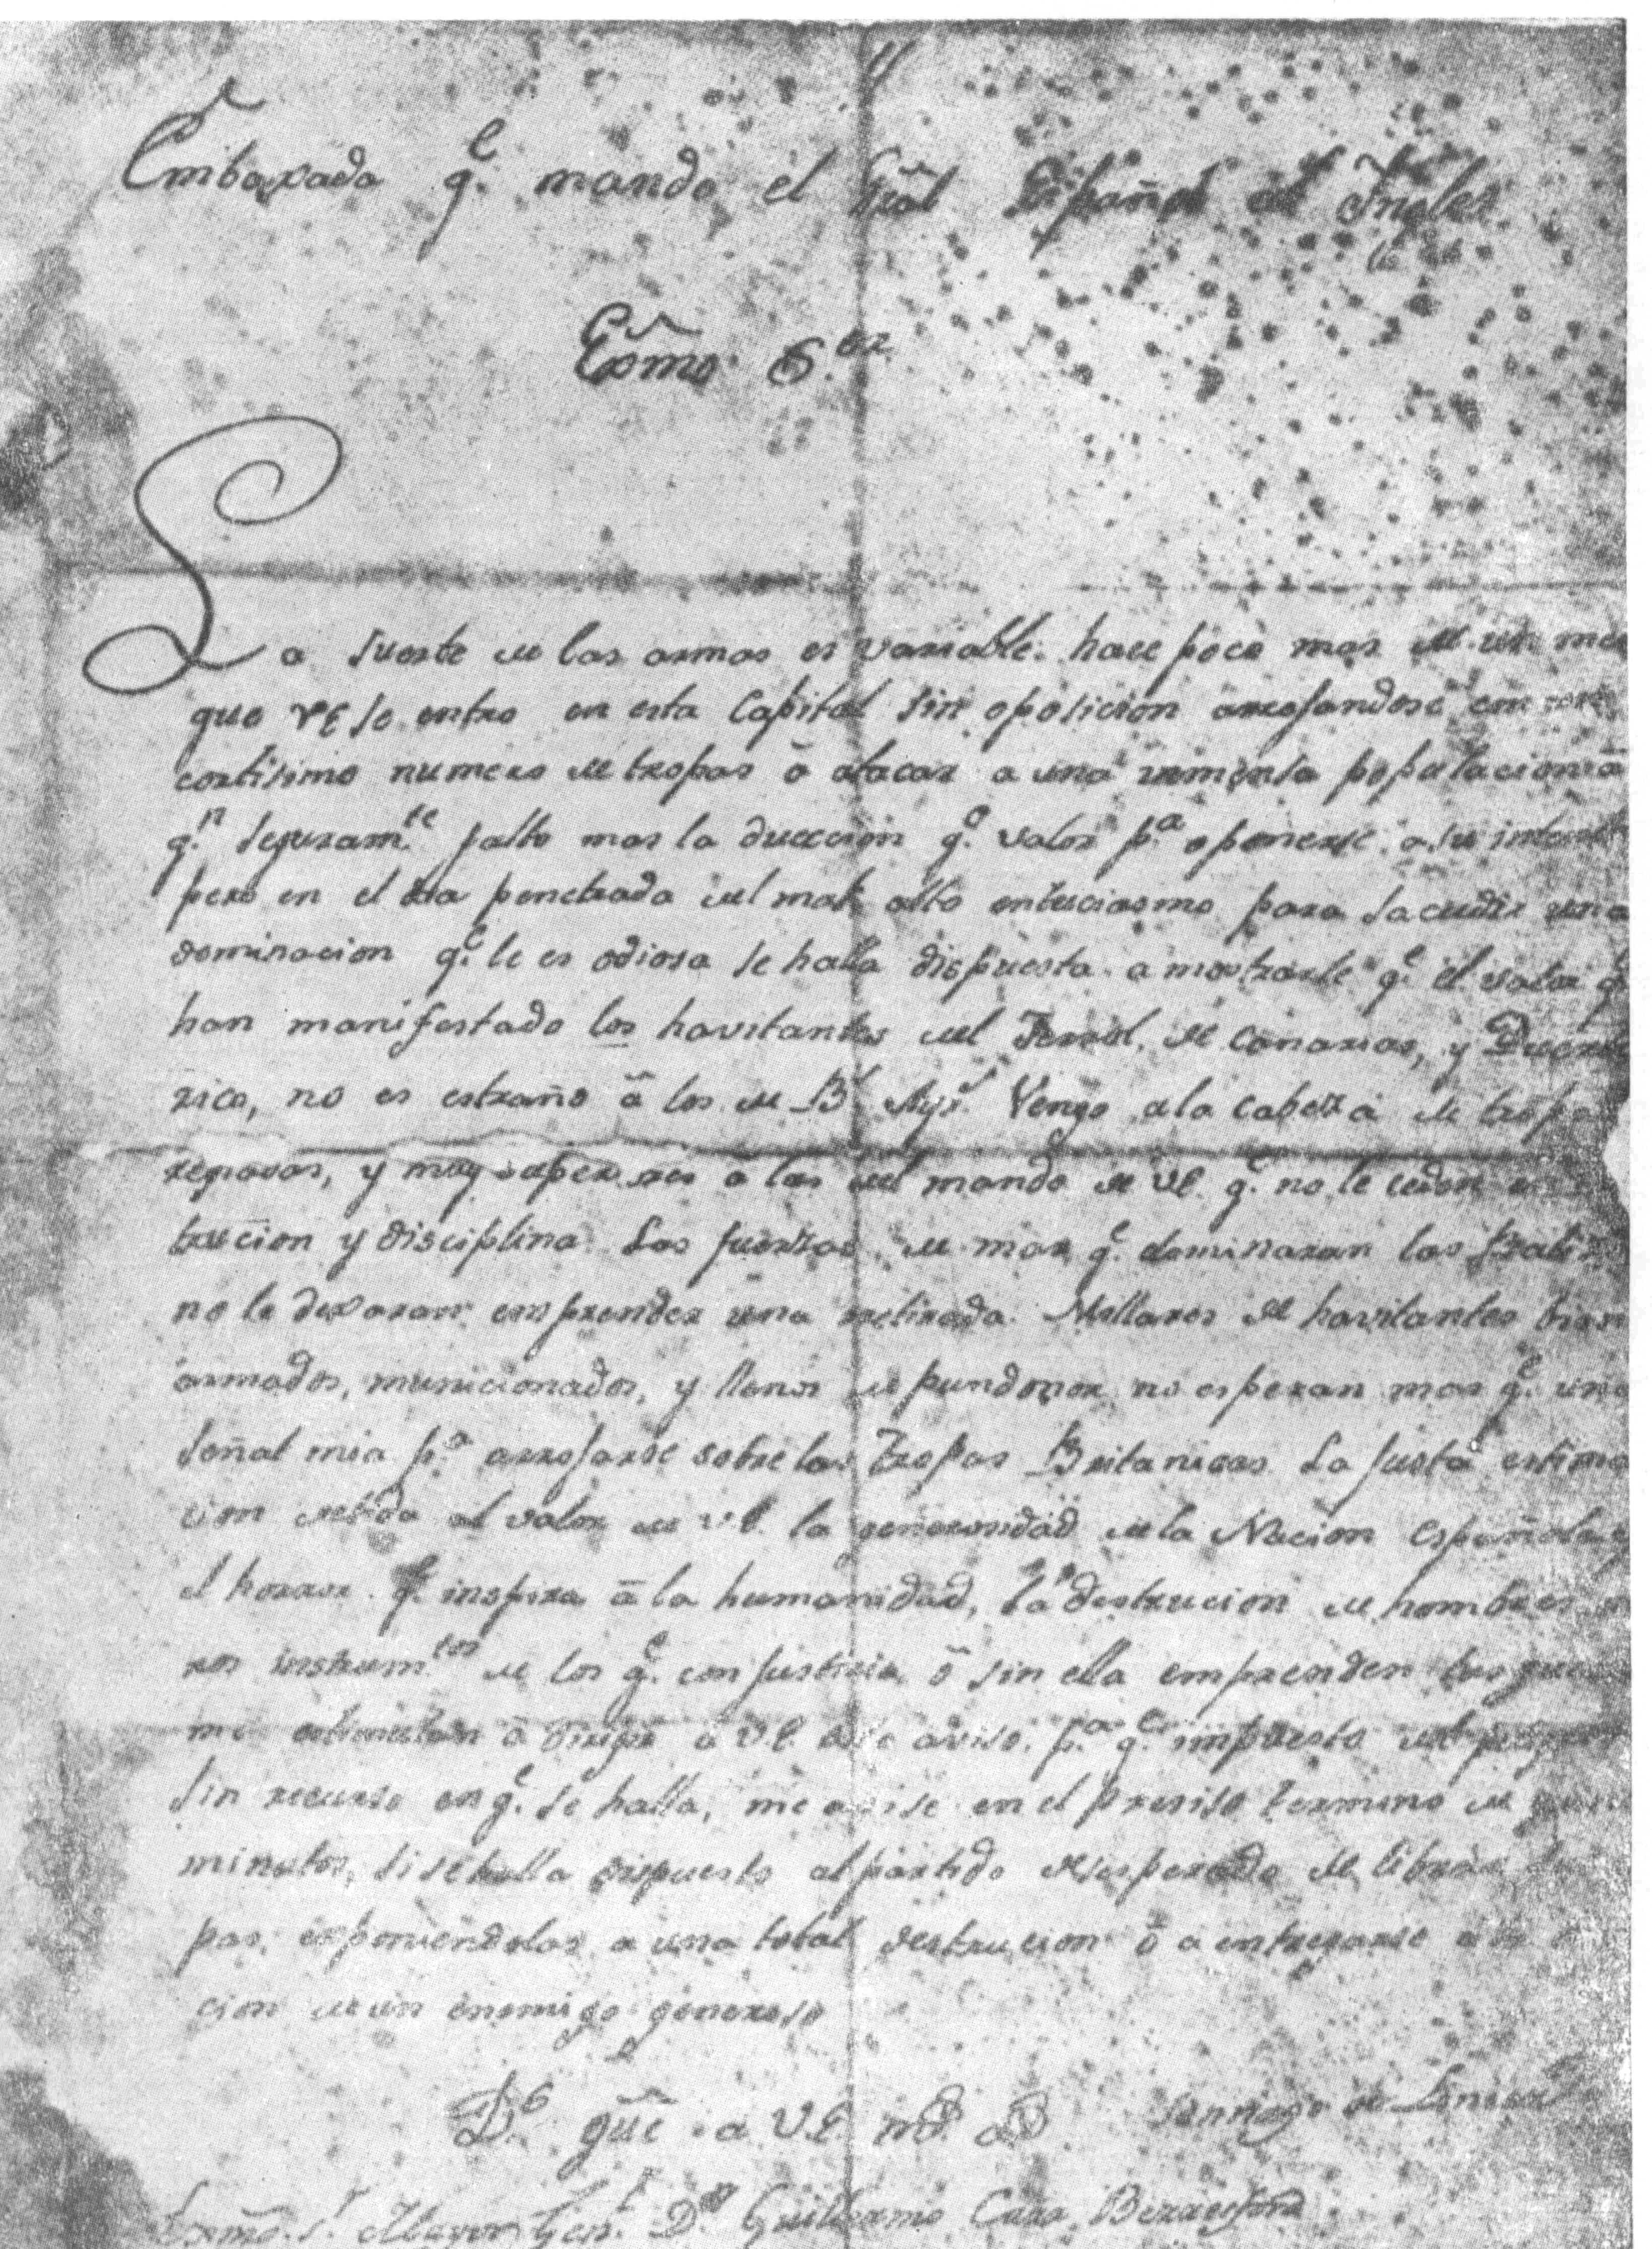 Embaxada q.e mando el Gral Español al Ingles
Exmo S.or
La suerte de las armas es variable: hace poco mas de un mes
que VE se entro en esta Capital sin oposicion arrojandose con
cortisimo numero de tropas ā atacar a una inmensa populacion ā
q.n seguram.te falto mas la direccion q.e valor p.a oponerse a su intento
pero en el dia penetrada del mas alto entuciasmo para sacudir una
dominacion q.e le es odiosa se halla dispuesta a mostrarle q.e el valor q.e
han manifestado los havitantes del Ferrol, de Canarias, y Puerto
rico, no es estraño ā los de B.s Ay.s Vengo a la cabeza de tropas
regladas, y muy superiores a las del mando de VE. q.e no le ceden en
trucion y disciplina. Las fuerzas de mar q.e dominaran las
no le dexaran emprender una retirada. Millares de havitantes bien
armados, municionados, y llenos de pundonor no esperan mas q.e una
señal mia p.a arrojarse sobre las Tropas Britanicas. La justa estima
cion devida al valor de V.E. la generosidad de la Nacion Española, y
el horror q.e inspira ā la humanidad, la destrucion de hombres
ros instrum.tos de los q.e con justicia ō sin ella emprenden las
me estimulan ā dirigir a V.E. este aviso, p.a q.e impuesto del
sin recurso en q.e se halla, me avise en el presiso termino de
minutos, si se halla dispuesto al partido desesperado de librar
pas, exponiendolas a una total destrucion ō a entregarse a
cion de un enemigo generoso
D.s gūe a V.E. m.s a.s Santiago de Liniers
Exmo. S.r Mayor Gen.l D.n Guillermo Carr Berresford